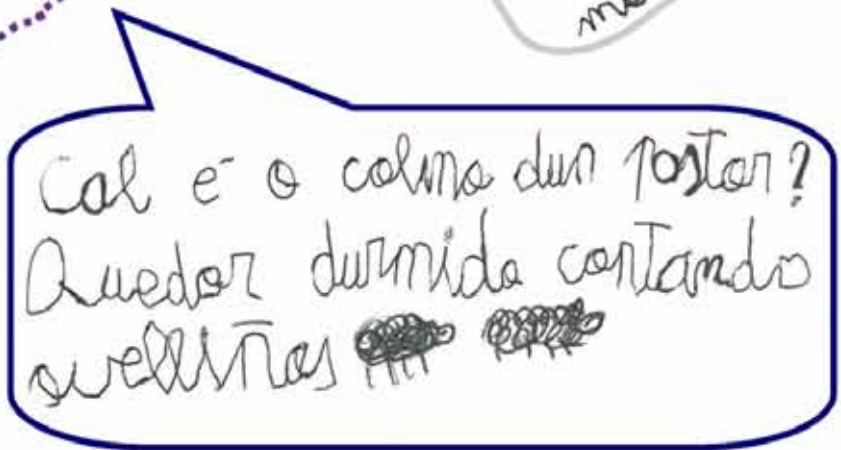 Cal é o colmo dun pastor?
Quedar durmido contando
ovelliñas